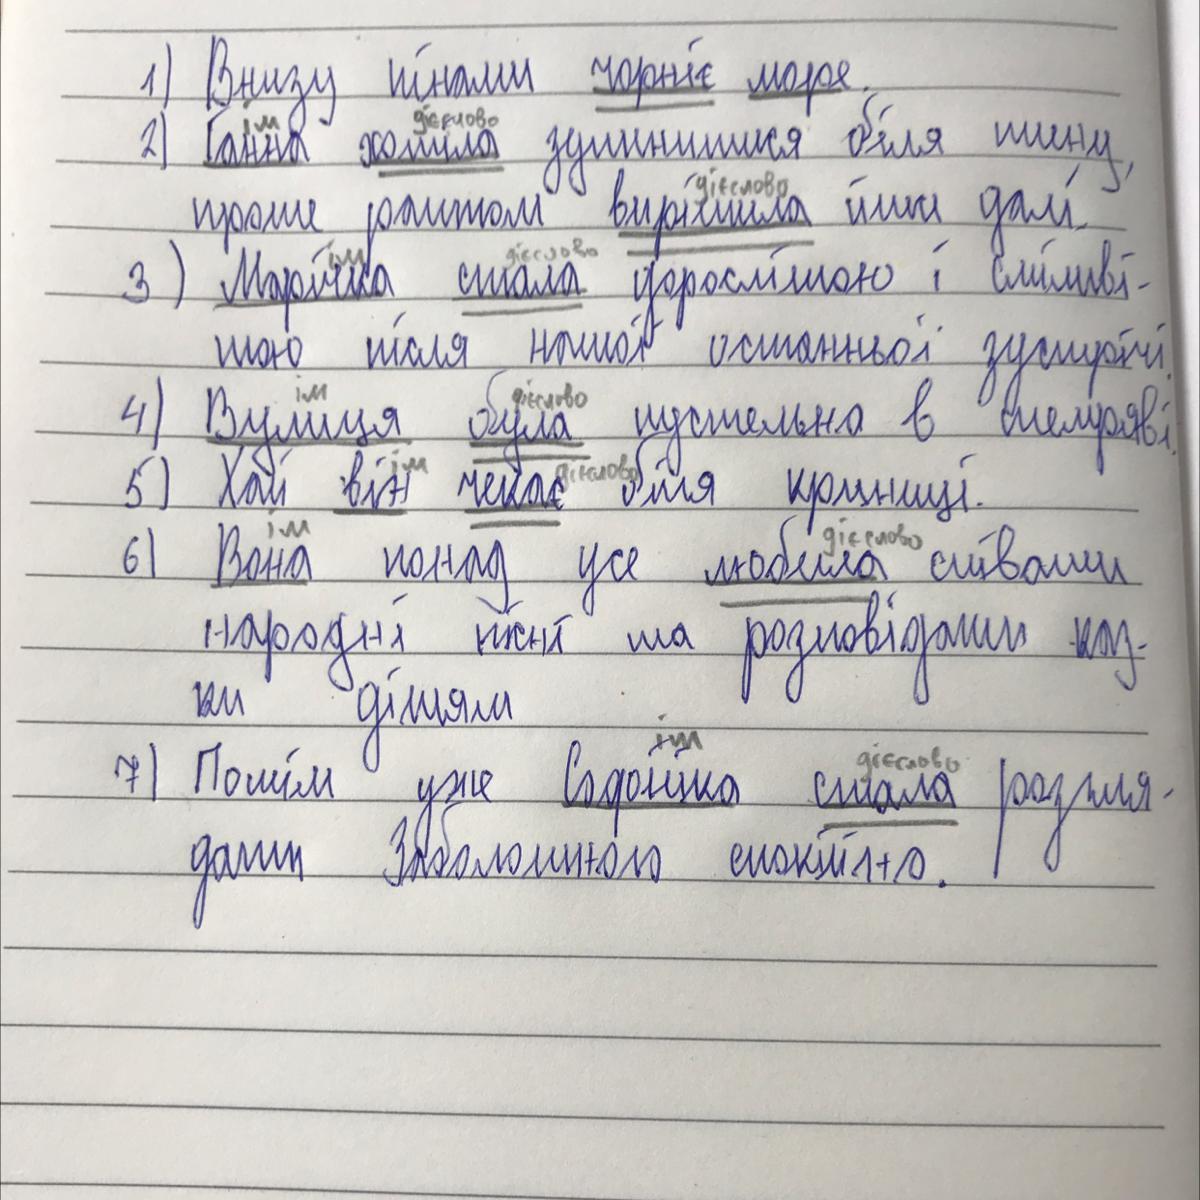 1) Внизу пінами чорніє море.
ім дієслово
2) Ганна хотіла зупинитися біля тину,
дієслово
проте раптом вирішила йти далі.
ім дієслово
3) Марічка стала дорослішою і сміливі-
шою після нашої останньої зустрічі.
ім дієслово
4) Вулиця була пустельна в темряві.
ім дієслово
5) Хай він чекає біля криниці.
ім дієслово
6) Вона понад усе любила співати
народні пісні та розповідати каз-
ки дітям
ім дієслово
7) Потім уже Софійка стала розгля-
дати Заболотного спокійно.